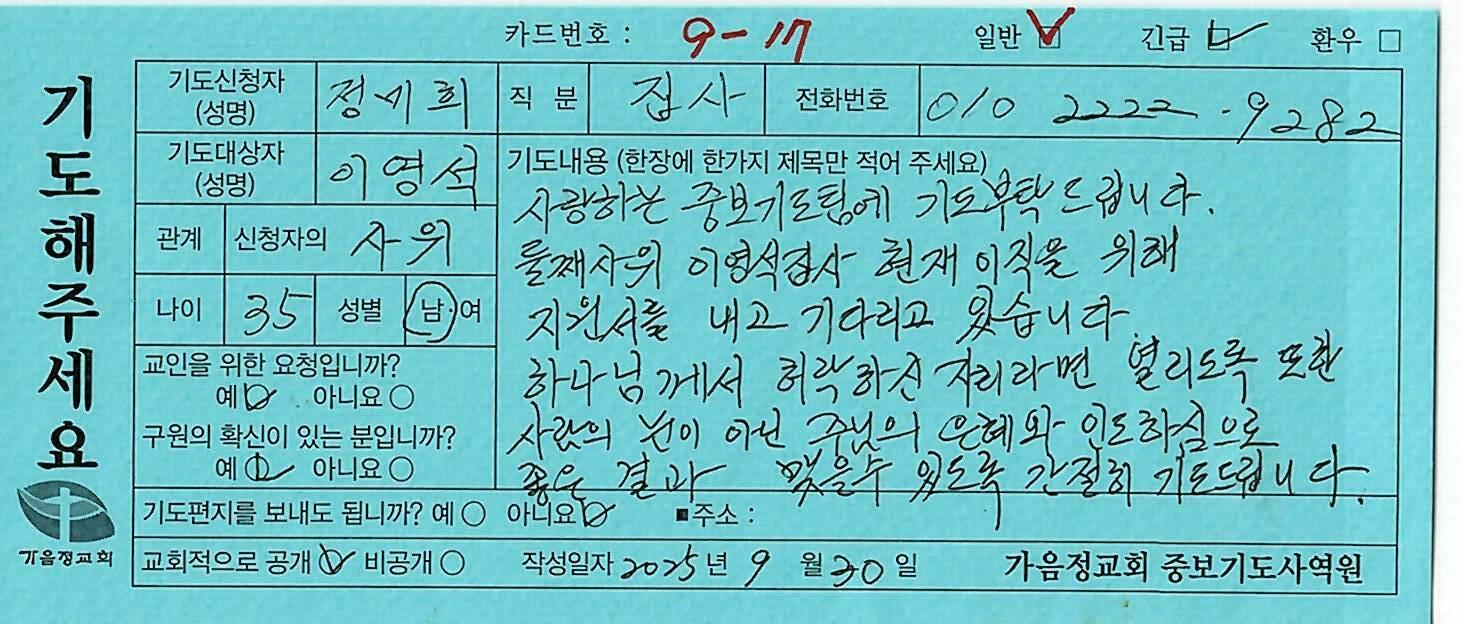 카드번호 : 9-17 일반 ☑ 긴급 ☑ 환우 □
기도해주세요
기도신청자 (성명) 정세희 직 분 집사 전화번호 010 2222-9282
기도대상자 (성명) 이영석
관계 신청자의 사위
나이 35 성별 남·여
교인을 위한 요청입니까?
예 아니요
구원의 확신이 있는 분입니까?
예 아니요
기도내용 (한장에 한가지 제목만 적어 주세요)
사랑하는 중보기도팀에 기도부탁드립니다.
둘째사위 이영석집사 현재 이직을 위해
지원서를 내고 기다리고 있습니다
하나님께서 허락하신 자리라면 열리도록 또한
사람의 뜻이 아닌 주님의 은혜와 인도하심으로
좋은 결과 맺을수 있도록 간절히 기도드립니다.
기도편지를 보내도 됩니까? 예 아니요 ■주소 :
교회적으로 공개 비공개 작성일자 2025년 9월 30일 가음정교회 중보기도사역원
가음정교회